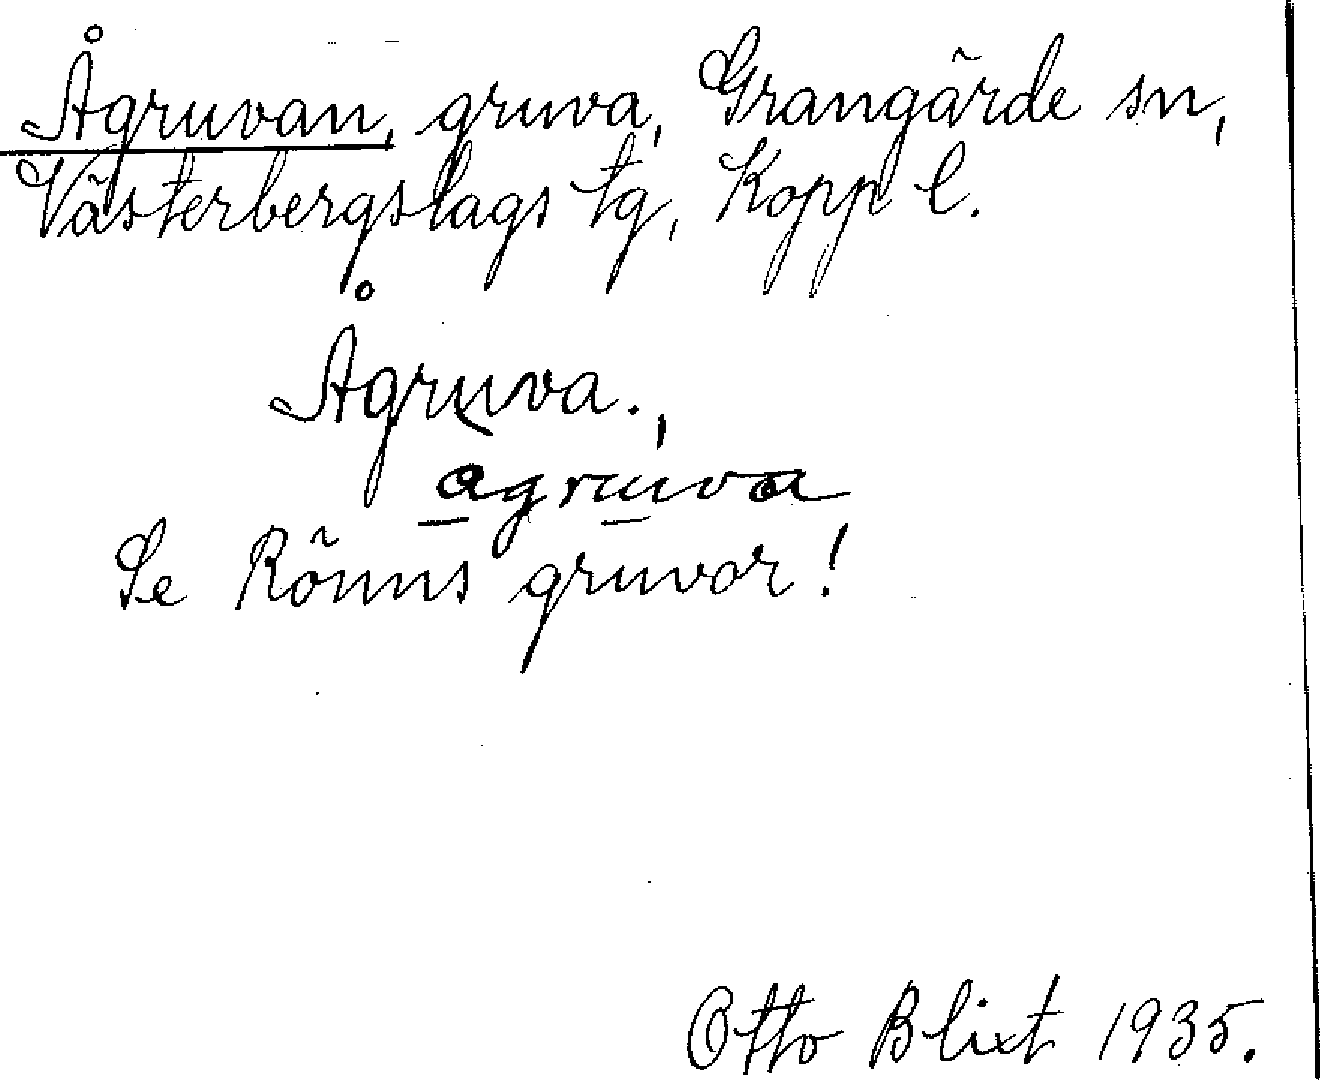 Ågruvan, gruva, Grangärde sn,
Västerbergslags tg, Kopp l.
Ågruva.,
agruva
Se Rönns gruvor!
Otto Blixt 1935.